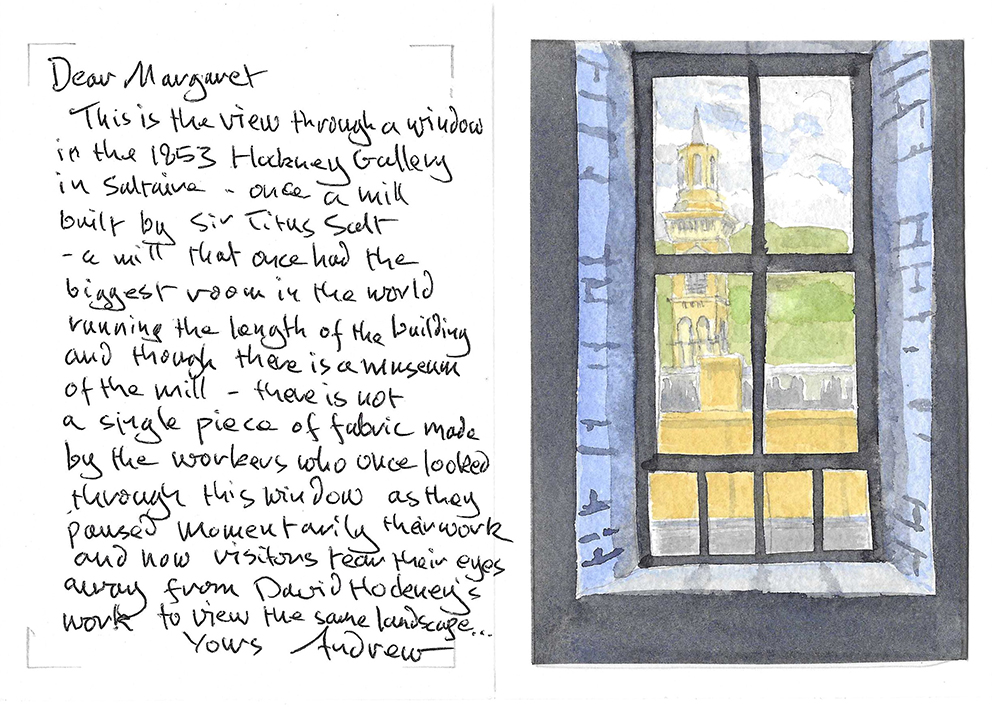 Dear Margaret
This is the view through a window
in the 1853 Hockney Gallery
in Saltaire - once a mill
built by Sir Titus Salt
- a mill that once had the
biggest room in the world
running the length of the building
and though there is a museum
of the mill - there is not
a single piece of fabric made
by the workers who once looked
through this window as they
paused momentarily their work
and now visitors tear their eyes
away from David Hockney's
work to view the same landscape...
Yours Andrew